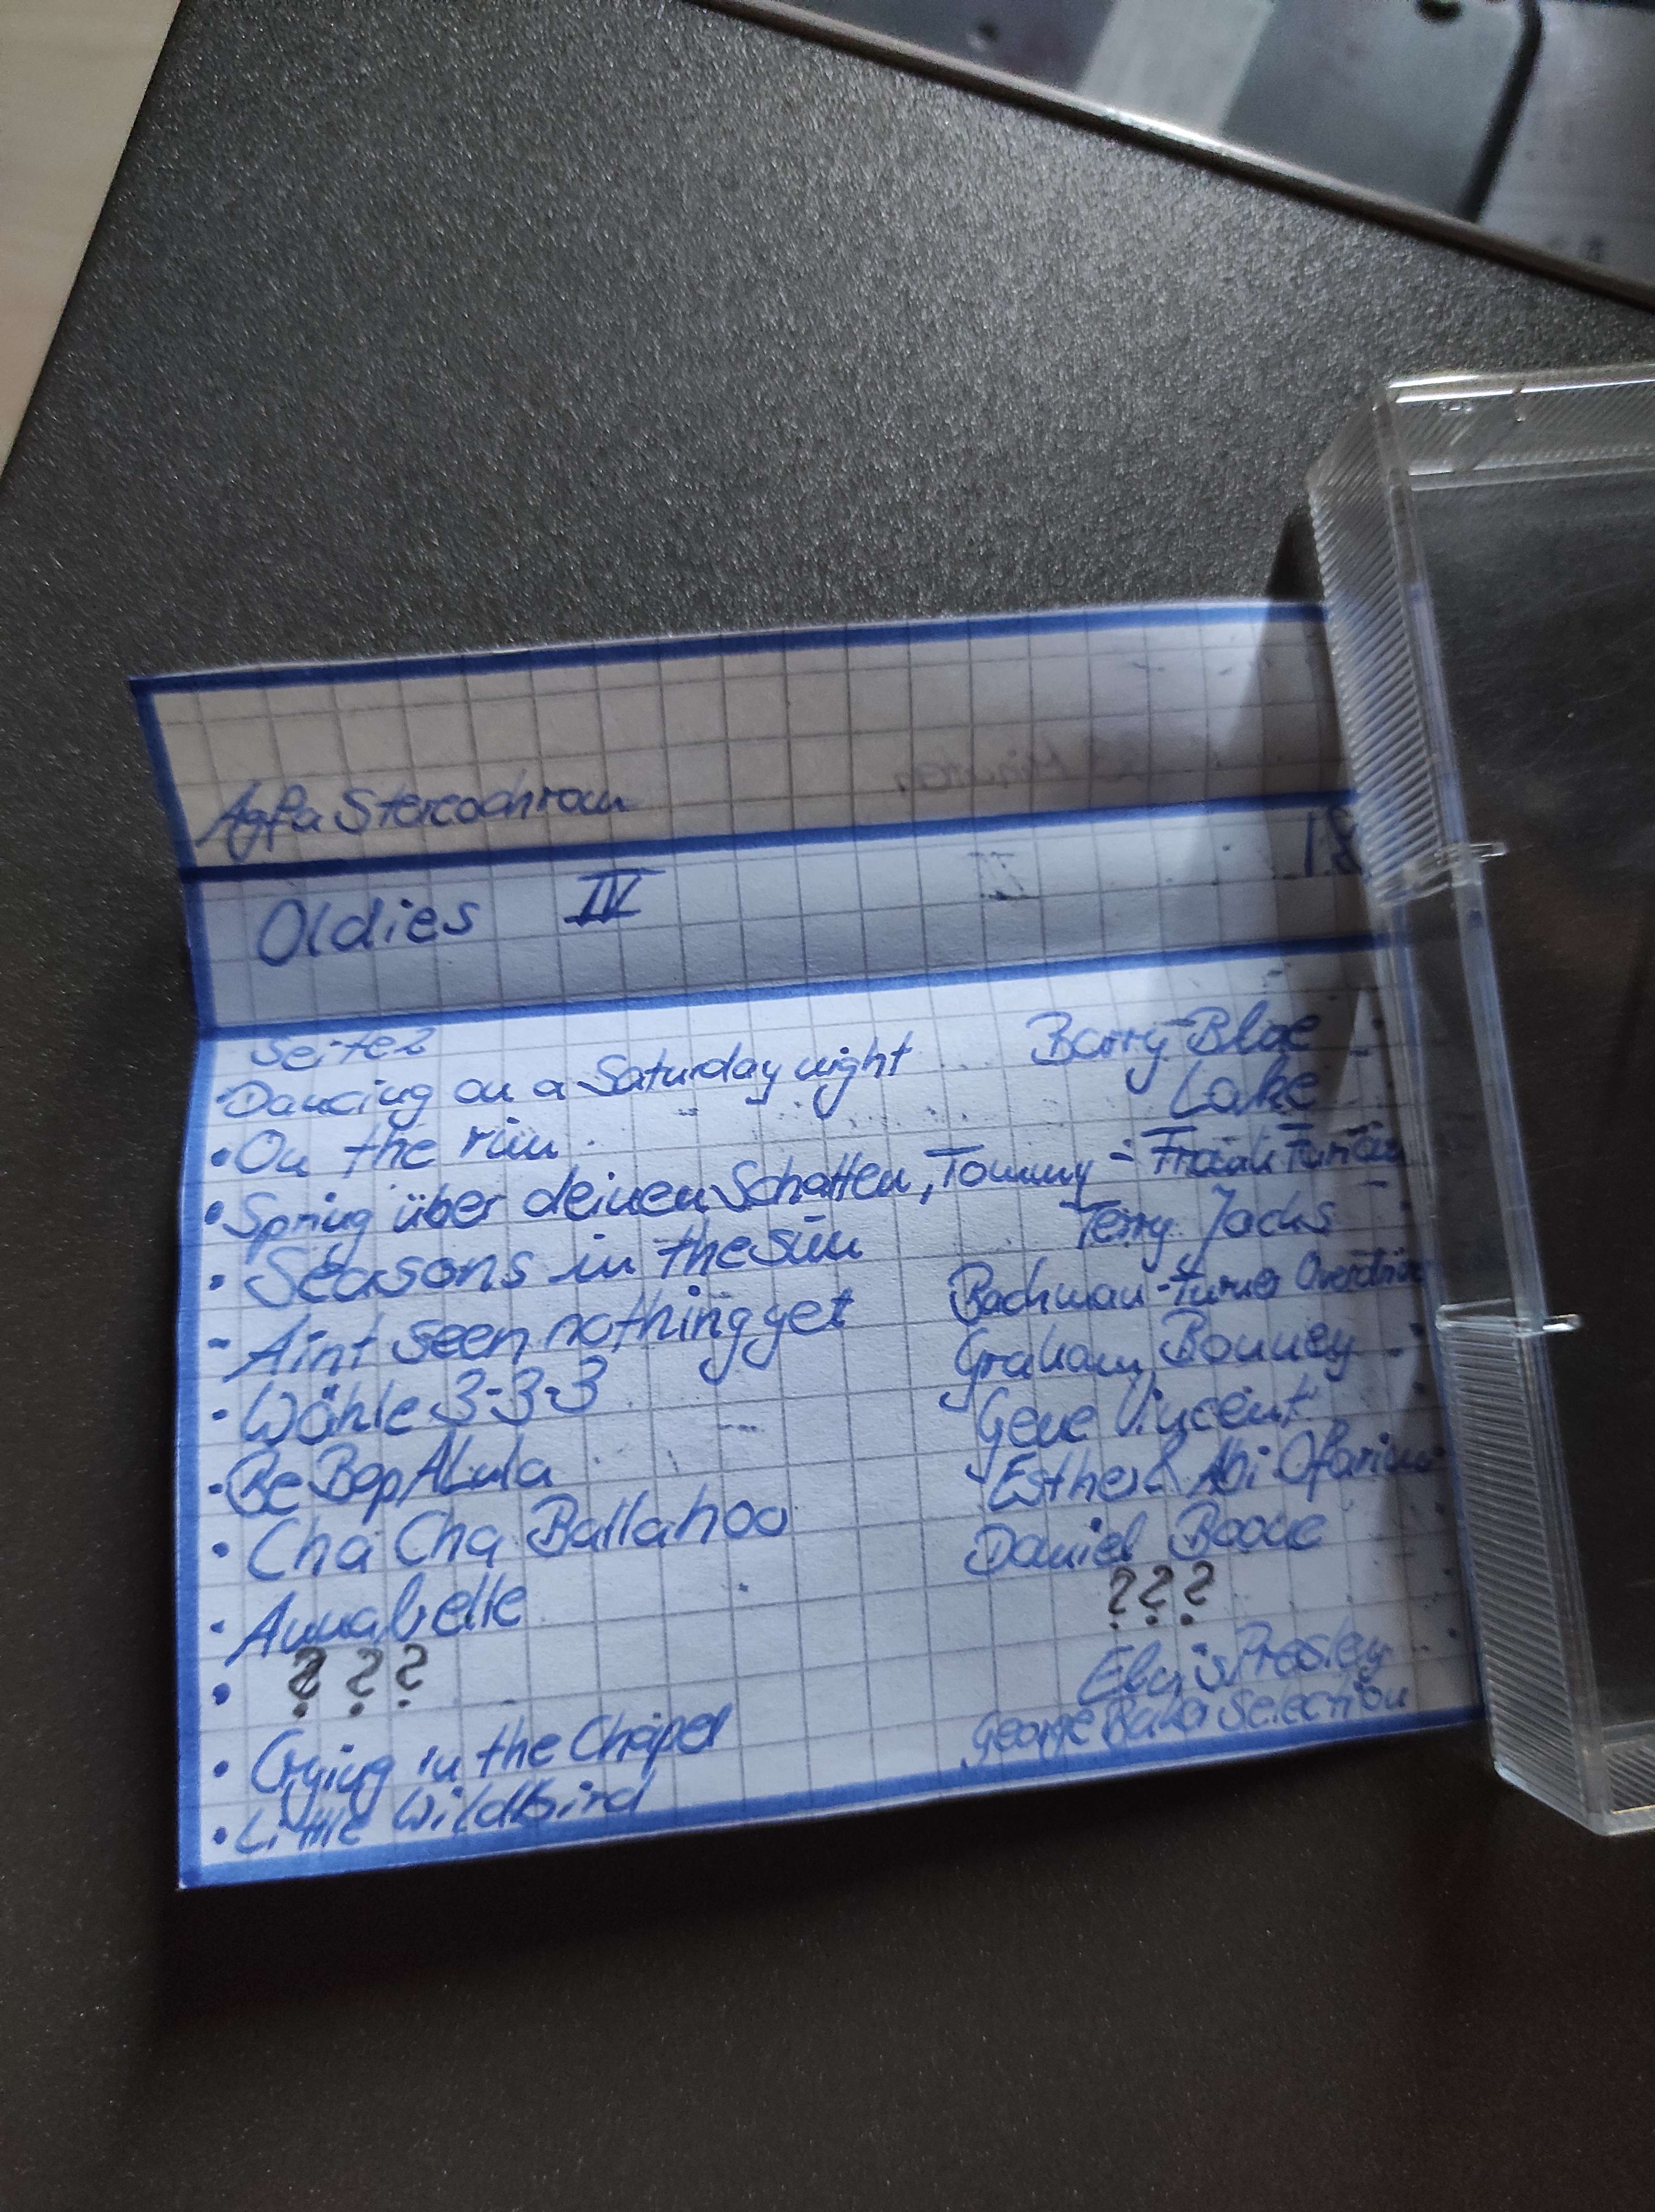 Agfa Stereochrom
Oldies IV
Seite 2
Dancing on a Saturday night Barry Blue
• On the run Lake
• Spring über deinen Schatten, Tommy - Frank Farian
• Seasons in the sun Terry Jacks
- Aint seen nothing yet Bachman-Turner Overdrive
• Wähle 3-3-3 Graham Bonney
• Be Bop ALula Gene Vincent
• Cha Cha Ballahoo Esther & Abi Ofarim
• Annabelle Daniel Boone
• ? ? ? ???
• Crying in the Chapel Elvis Presley
• Little Wildbird George Baker Selection